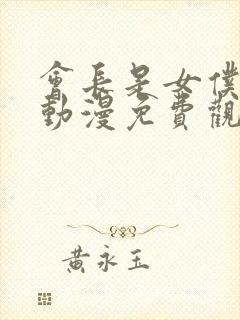 會長是女僕
動漫免費觀
黃永玉